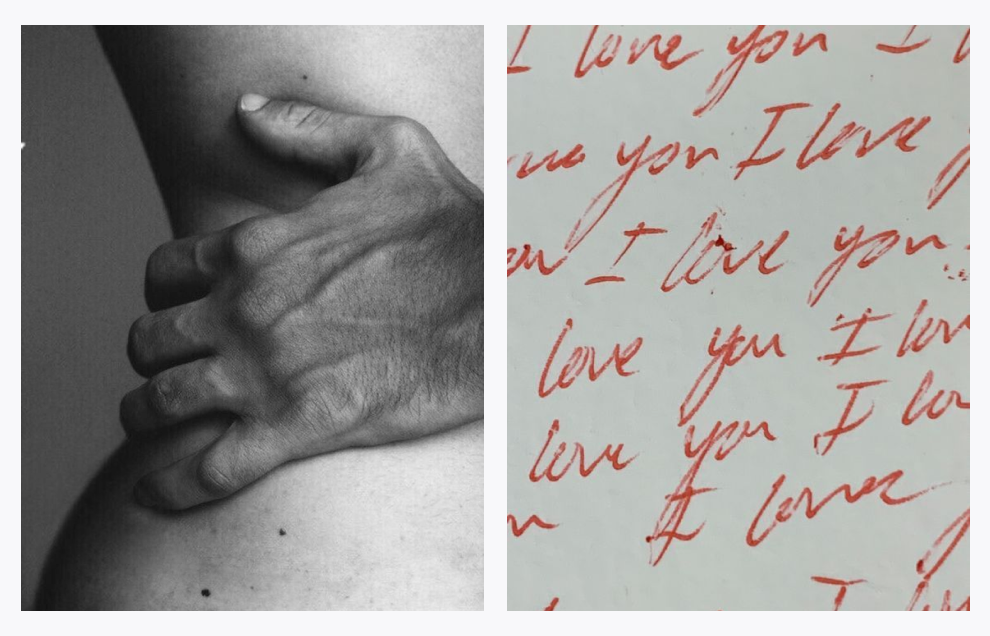 I love you I
you I love
I love you
love you I love
love you I
I love
I